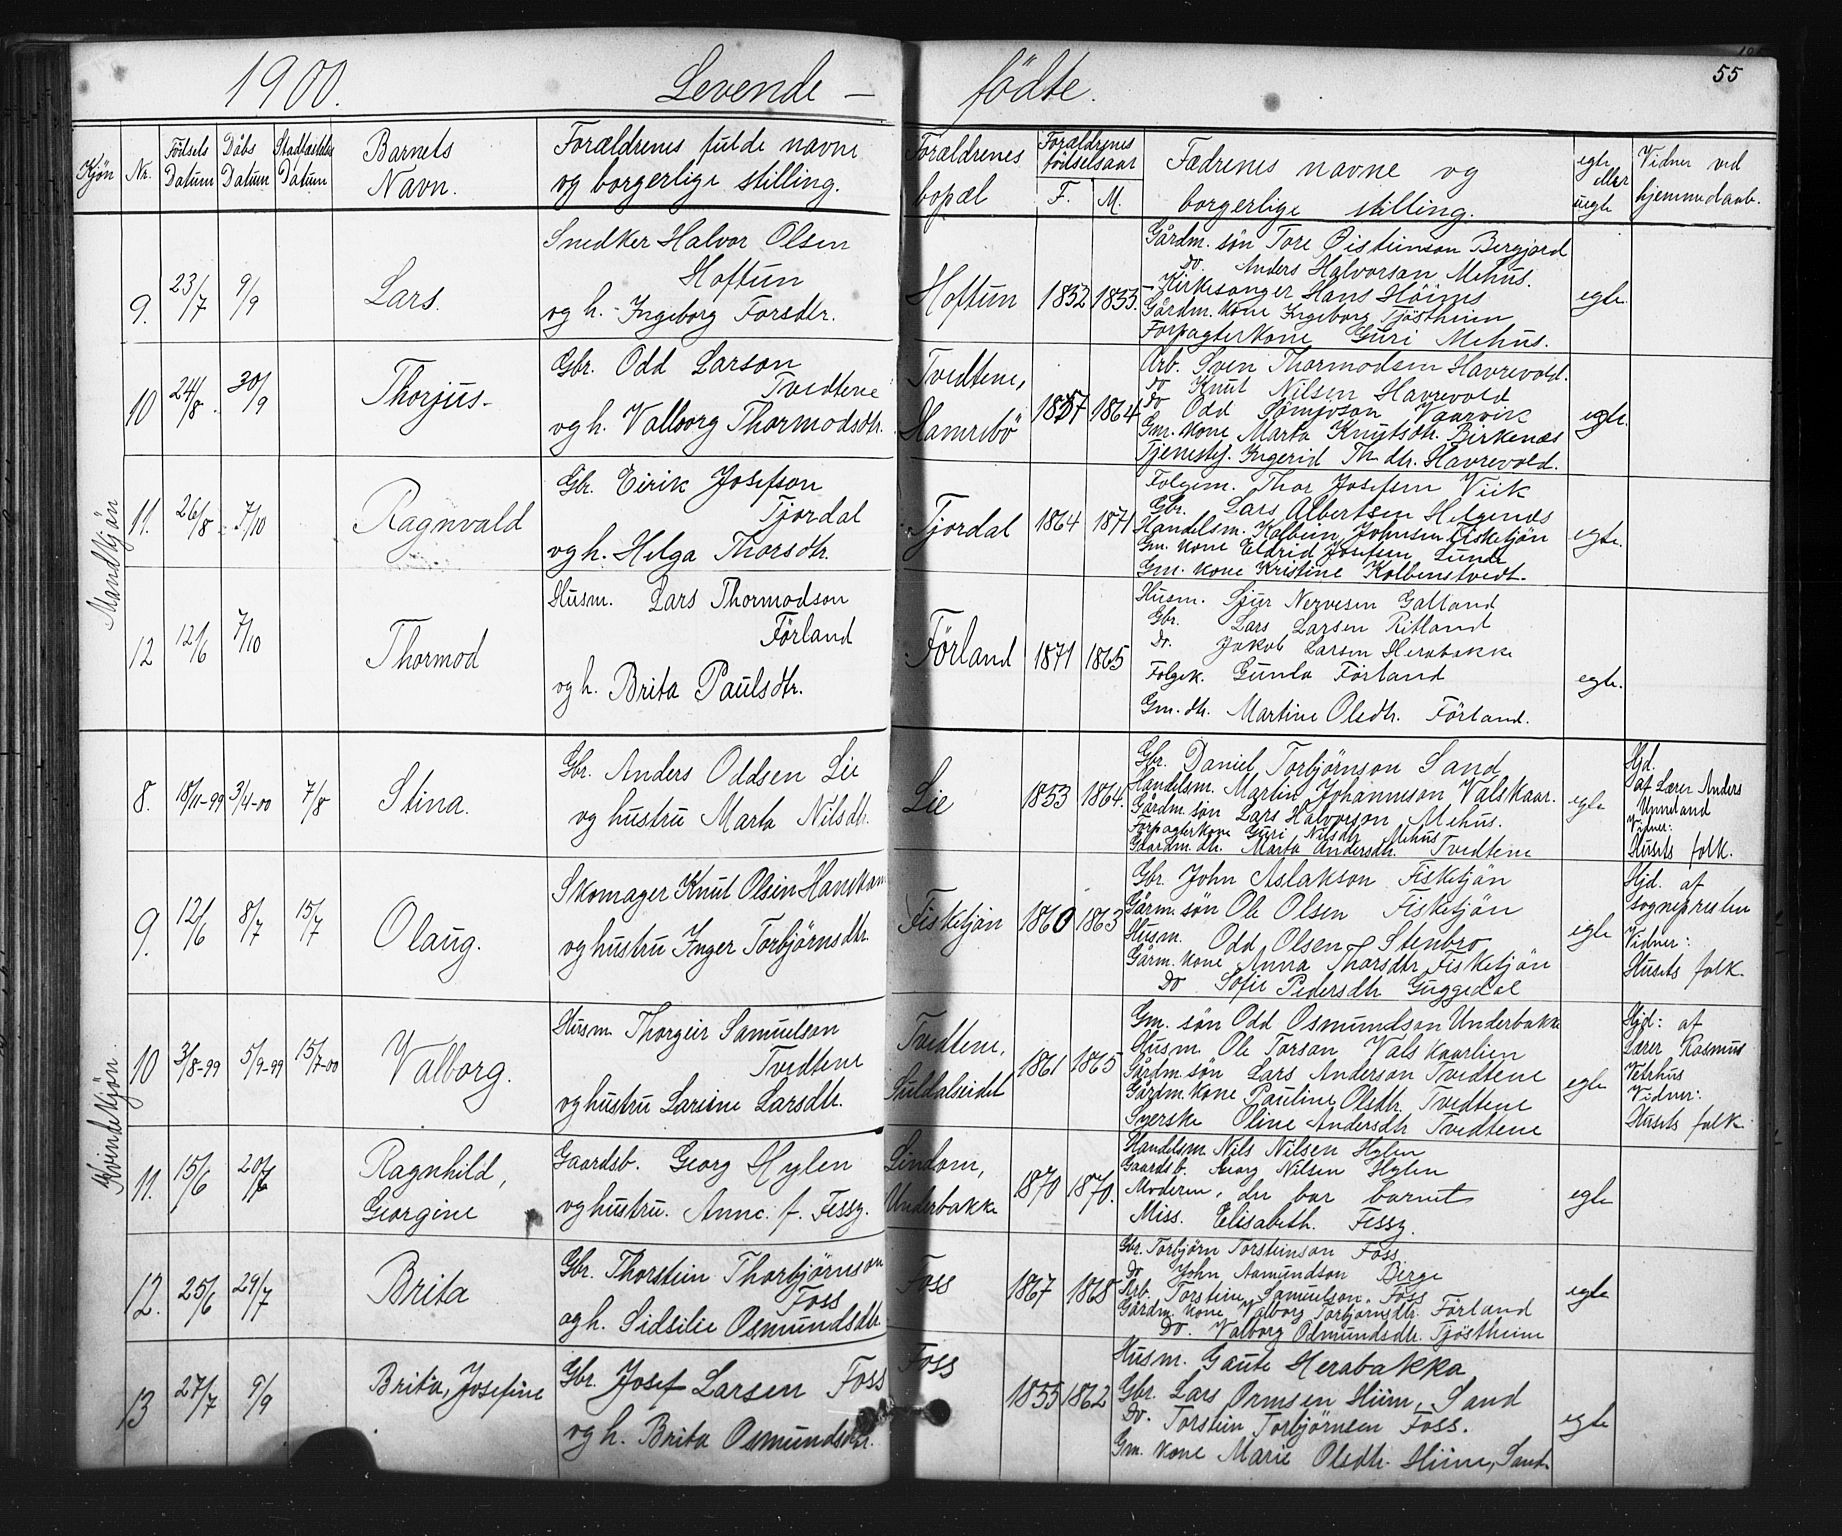 1900. Levende – födte. 55
Kjön Nr. Födsels Datum Dåbs Datum Stadfæstelses Datum Barnets Navn. Forældrenes fulde navne og borgerlige stilling. Forældrenes bopæl Forældrenes födselsaar F. M. Fædrenes navne og borgerlige stilling. egte eller uegte Vidner ved hjemmedaab.
Mandkjön
9. 23/7 9/9 Lars. Snedker Halvor Olsen
Hoftun
og h. Ingeborg Forsdtr.
Hoftun 1832 1855.
Gårdm. sön Tore Öisteinson Bergjord
Do. Anders Halvorsan Mehus.
Kirkesanger Hans Höines
Gårdm. kone Ingeborg Tjöstheim
Forpagterkone Guri Mehus.
egte.
10 24/8. 30/9 Thorjus- Gbr. Odd Larson
Tvedtene
og h. Valborg Thormodsdtr.
Tvedtene,
Hamrebö
1857 1864
Arb. Sven Thormodsen Havrevold.
do Knut Nilsen Havrevold
do Odd Vaarvik
Gm. kone Marta Knutsdtr. Birkenæs
Tjenestej. Ingerid Th. dtr. Havrevold.
egte.
11. 26/8 7/10 Ragnvald Gbr. Eirik Josefson
Tjordal
og h. Helga Thorsdtr.
Tjordal 1864 1871
Folgem. Thor Josefsen Viik
Gbr. Lars Albertsen Helgenæs
Handelsm. Kolbein Johnsen Fisketjön
Gm. kone Eldrid Josefsen Lunde
Gm. kone Kristine Kolbenstvedt.
egte.
12 12/6 7/10 Thormod Husm. Lars Thormodson
Förland
og h. Brita Paulsdtr.
Förland 1871 1865
Husm. Sjur Nervesen Galland
Gbr. Lars Larsen Ritland
Do. Jakob Larsen Herabakke
Folgek. Gunla Förland
Gm. dtr. Martine Olsdtr. Förland.
egte.
Kvindekjön.
8. 18/11-99 3/4-00 7/8 Stina. Gbr. Anders Oddsen Lie
og hustru Marta Nilsdtr.
Lie 1853 1864.
Gbr. Daniel Torbjörnson Sand
Handelsm. Martin Johanneson Valskaar.
Gårdm. sön Lars Halvorson Mehus.
Forpagterkone Guri Nilsdtr Mehus
Gaardm. dtr. Marta Andersdtr. Tvedtene
egte
Hjd.
af Lærer Anders
Unneland
Vidner:
Husets folk.
9. 12/6 8/7 15/7 Olaug. Skomager Knut Olsen Hanekam
og hustru Inger Torbjörnsdtr.
Fisketjön 1860 1863
Gbr. John Aslakson Fisketjön
Gårm. sön Ole Olsen Fisketjön
Husm. Odd Olsen Stenbro
Gårm. kone Anna Thorsdtr Fisketjön
Do Sofie Pedersdtr Guggedal
egte
Hjd. af
sognepresten
Vidner:
Husets folk.
10 3/8-99 5/9-99 15/7-00 Valborg. Husm. Thorgeir Samuelsen
Tvedtene
og hustru Larsine Larsdtr.
Tvedtene,
Suldalseidet
1861 1865
Gm. sön Odd Osmundson Underbakke
Husm. Ole Torson Valskaarlien
Gårdm. sön Lars Anderson Tvedtene
Gårdm. kone Pauline Olsdtr. Tvedtene
Syerske Oline Andersdtr Tvedtene
egte
Hjd: af
Lærer Rasmus
Vetrhus
Vidner:
Husets folk.
11. 15/6 20/7 Ragnhild,
Georgine
Gaardsb. Georg Hylen
og hustru. Anne. f. Fessy.
Lindom,
Underbakke
1870 1870.
Handelsm. Nils Nilsen Hylen
Gaardsb. Georg Nilsen Hylen
Moderen, der bar barnet
Miss. Elisabeth. Fessy.
egte
12. 25/6 29/7 Brita Gbr. Thorstein Thorbjörnson
Foss
og h. Sidsilie Osmundsdtr.
Foss 1867 1868
Gbr. Torbjörn Torsteinson Foss
Do John Aamundson Berge
Arb. Torstein Samuelson Foss
Gårdm. kone Valborg Torbjörnsdtr. Förland
Do. Valborg Odmundsdtr. Tjöstheim
egte
13 27/7 9/9 Brita, Josefine Gbr. Josef Larsen Foss
og h. Brita Osmundsdtr.
Foss 1855 1862
Husm. Gaute Herabakka
Gbr. Lars Ormsen Hiim, Sand
Do. Torstein Torbjörnsen Foss.
Gm. kone Marie Olsdtr. Hiim, Sand.
egte